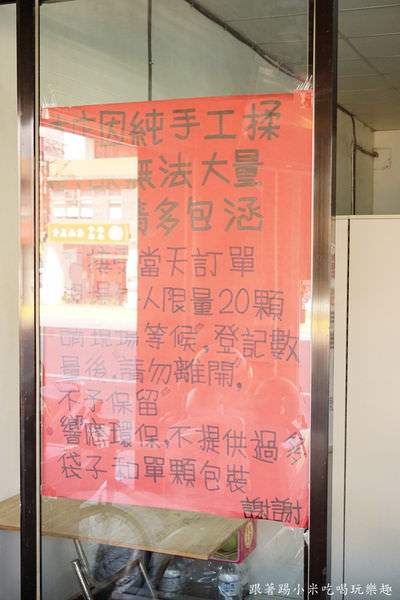 本店因純手工揉
無法大量
請多包涵
當天訂單
人限量20顆
請現場等候,登記數
量後,請勿離開,
不予保留
響應環保,不提供過多
袋子和單顆包裝
謝謝
跟著踢小米吃喝玩樂趣